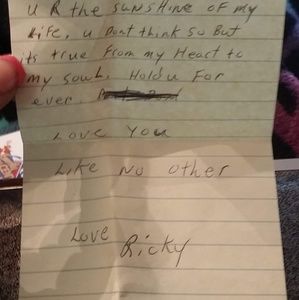 U R the sunshine of my
Life, u Dont think so But
its true From my Heart to
my soul. Hold u For
ever.
Love You
Like No other
Love
Ricky